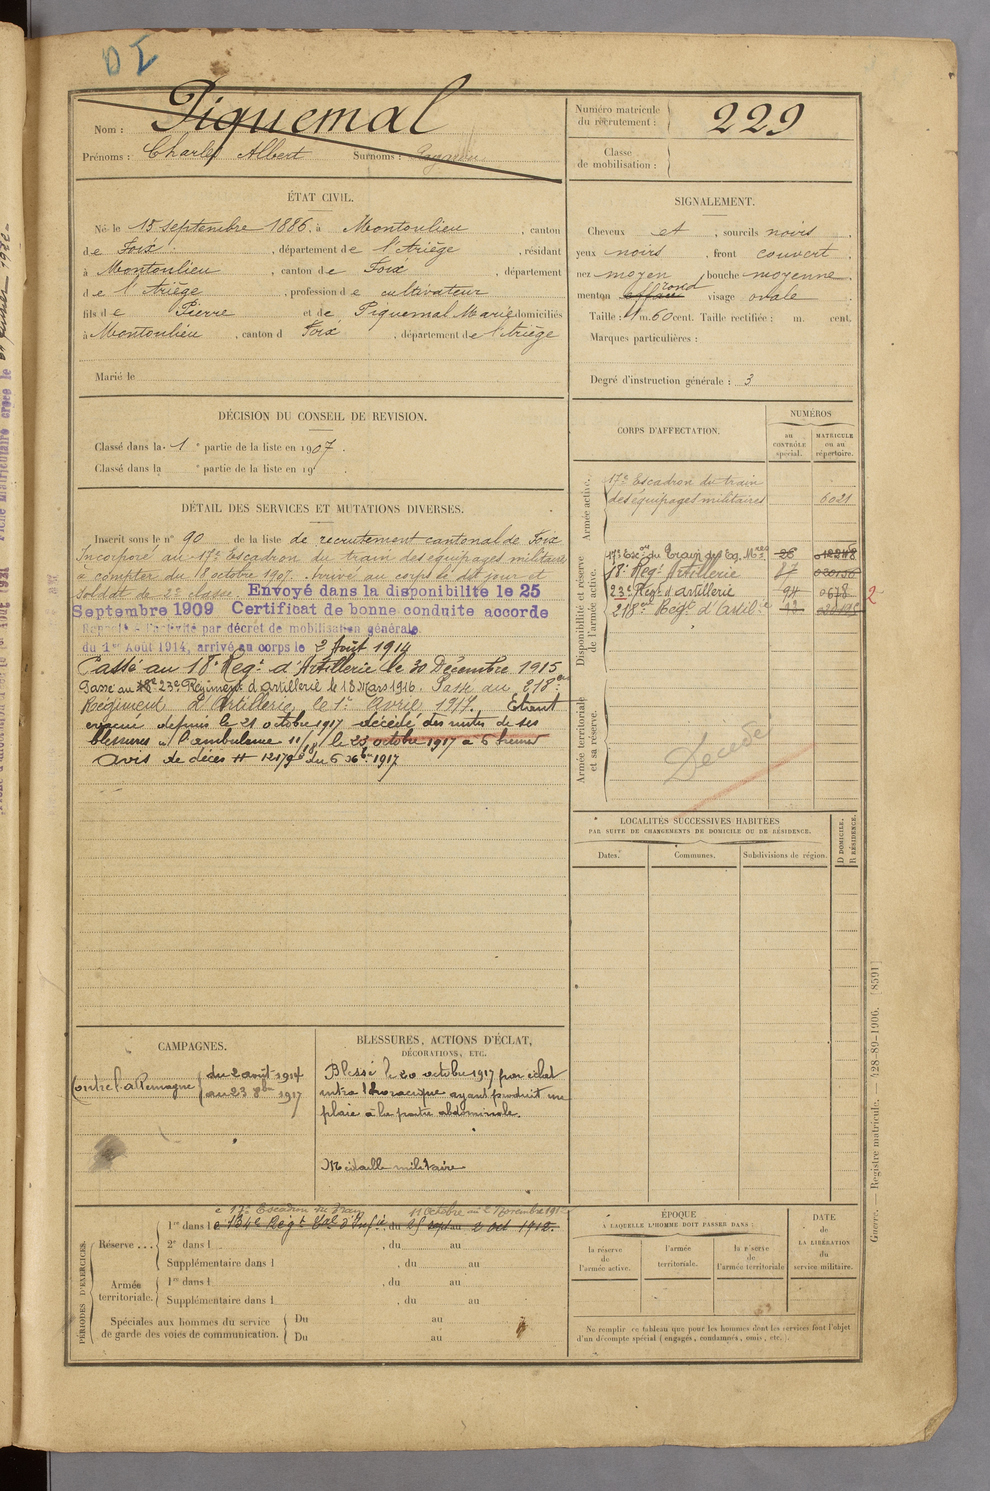 DI
Nom : Piquemal
Prénoms : Charles Albert Surnoms :
Numéro matricule du recrutement : 229
Classe de mobilisation :
ÉTAT CIVIL.
Né le 15 septembre 1886, à Montoulieu, canton
de Foix, département de l'Ariège, résidant
à Montoulieu, canton de Foix, département
de l'Ariège, profession de cultivateur
fils de Pierre et de Piquemal Marie domiciliés
à Montoulieu, canton d Foix, département de l'Ariège
Marié le
SIGNALEMENT.
Cheveux et, sourcils noirs
yeux noirs, front couvert
nez moyen, bouche moyenne
menton rond visage ovale
Taille : 1 m. 60 cent. Taille rectifiée : m. cent.
Marques particulières :
Degré d'instruction générale : 3
DÉCISION DU CONSEIL DE REVISION.
Classé dans la 1 e partie de la liste en 1907.
Classé dans la e partie de la liste en 19
DÉTAIL DES SERVICES ET MUTATIONS DIVERSES.
Inscrit sous le n° 90 de la liste de recrutement cantonal de Foix
Incorporé au 17e Escadron du train des équipages militaires
à compter du 8 octobre 1907. Arrivé au corps le dit jour et
soldat de 2e classe. Envoyé dans la disponibilité le 25
Septembre 1909 Certificat de bonne conduite accordé
Rappelé à l'activité par décret de mobilisation générale
du 1er Août 1914, arrivé au corps le 2 Août 1914
Passé au 18e Regt d'Artillerie le 20 Décembre 1915
Passé au 23e Régiment d'artillerie le 13 Mars 1916. Passé au 218e
Régiment d'Artillerie le 1er Avril 1917. Etant
évacué depuis le 21 octobre 1917 décédé des suites de ses
blessures à l'ambulance 11/18 le 23 octobre 1917 à 6 heures
Avis de décès n° 12179 du 6 Xbre 1917
CORPS D'AFFECTATION.
NUMÉROS
au CONTRÔLE spécial.
MATRICULE ou au répertoire.
Armée active.
17e Escadron du train
des équipages militaires 6021
Disponibilité et réserve de l'armée active.
17e Escon du Train des Eq. Mres 26
18e Regt Artillerie 87
23e Regt d'artillerie 94 0678 2
218e Regt d'Artille
Armée territoriale et sa réserve.
Décédé
LOCALITÉS SUCCESSIVES HABITÉES
PAR SUITE DE CHANGEMENTS DE DOMICILE OU DE RÉSIDENCE.
Dates. Communes. Subdivisions de région.
D DOMICILE.
R RÉSIDENCE.
CAMPAGNES.
Contre l'allemagne { du 2 août 1914
au 23 8bre 1917
BLESSURES, ACTIONS D'ÉCLAT,
DÉCORATIONS, ETC.
Blessé le 20 octobre 1917 par éclat
intra thoracique ayant produit une
plaie à la partie abdominale.
Médaille militaire
PÉRIODES D'EXERCICES.
17e Escadron du Train 11 Octobre au 2 Novembre 1912
Réserve ... 1re dans l e 134e Regt d'Infie, du 25 sept au 2 oct 1912.
2e dans l , du au
Supplémentaire dans l , du au
Armée territoriale. 1re dans l , du au
Supplémentaire dans l , du au
Spéciales aux hommes du service Du au
de garde des voies de communication. Du au
ÉPOQUE
À LAQUELLE L'HOMME DOIT PASSER DANS :
la réserve de l'armée active.
l'armée territoriale.
la réserve de l'armée territoriale
DATE de LA LIBÉRATION du service militaire.
Ne remplir ce tableau que pour les hommes dont les services font l'objet
d'un décompte spécial (engagés, condamnés, omis, etc.).
Guerre. — Registre matricule. — 128-89-1906. [8591]